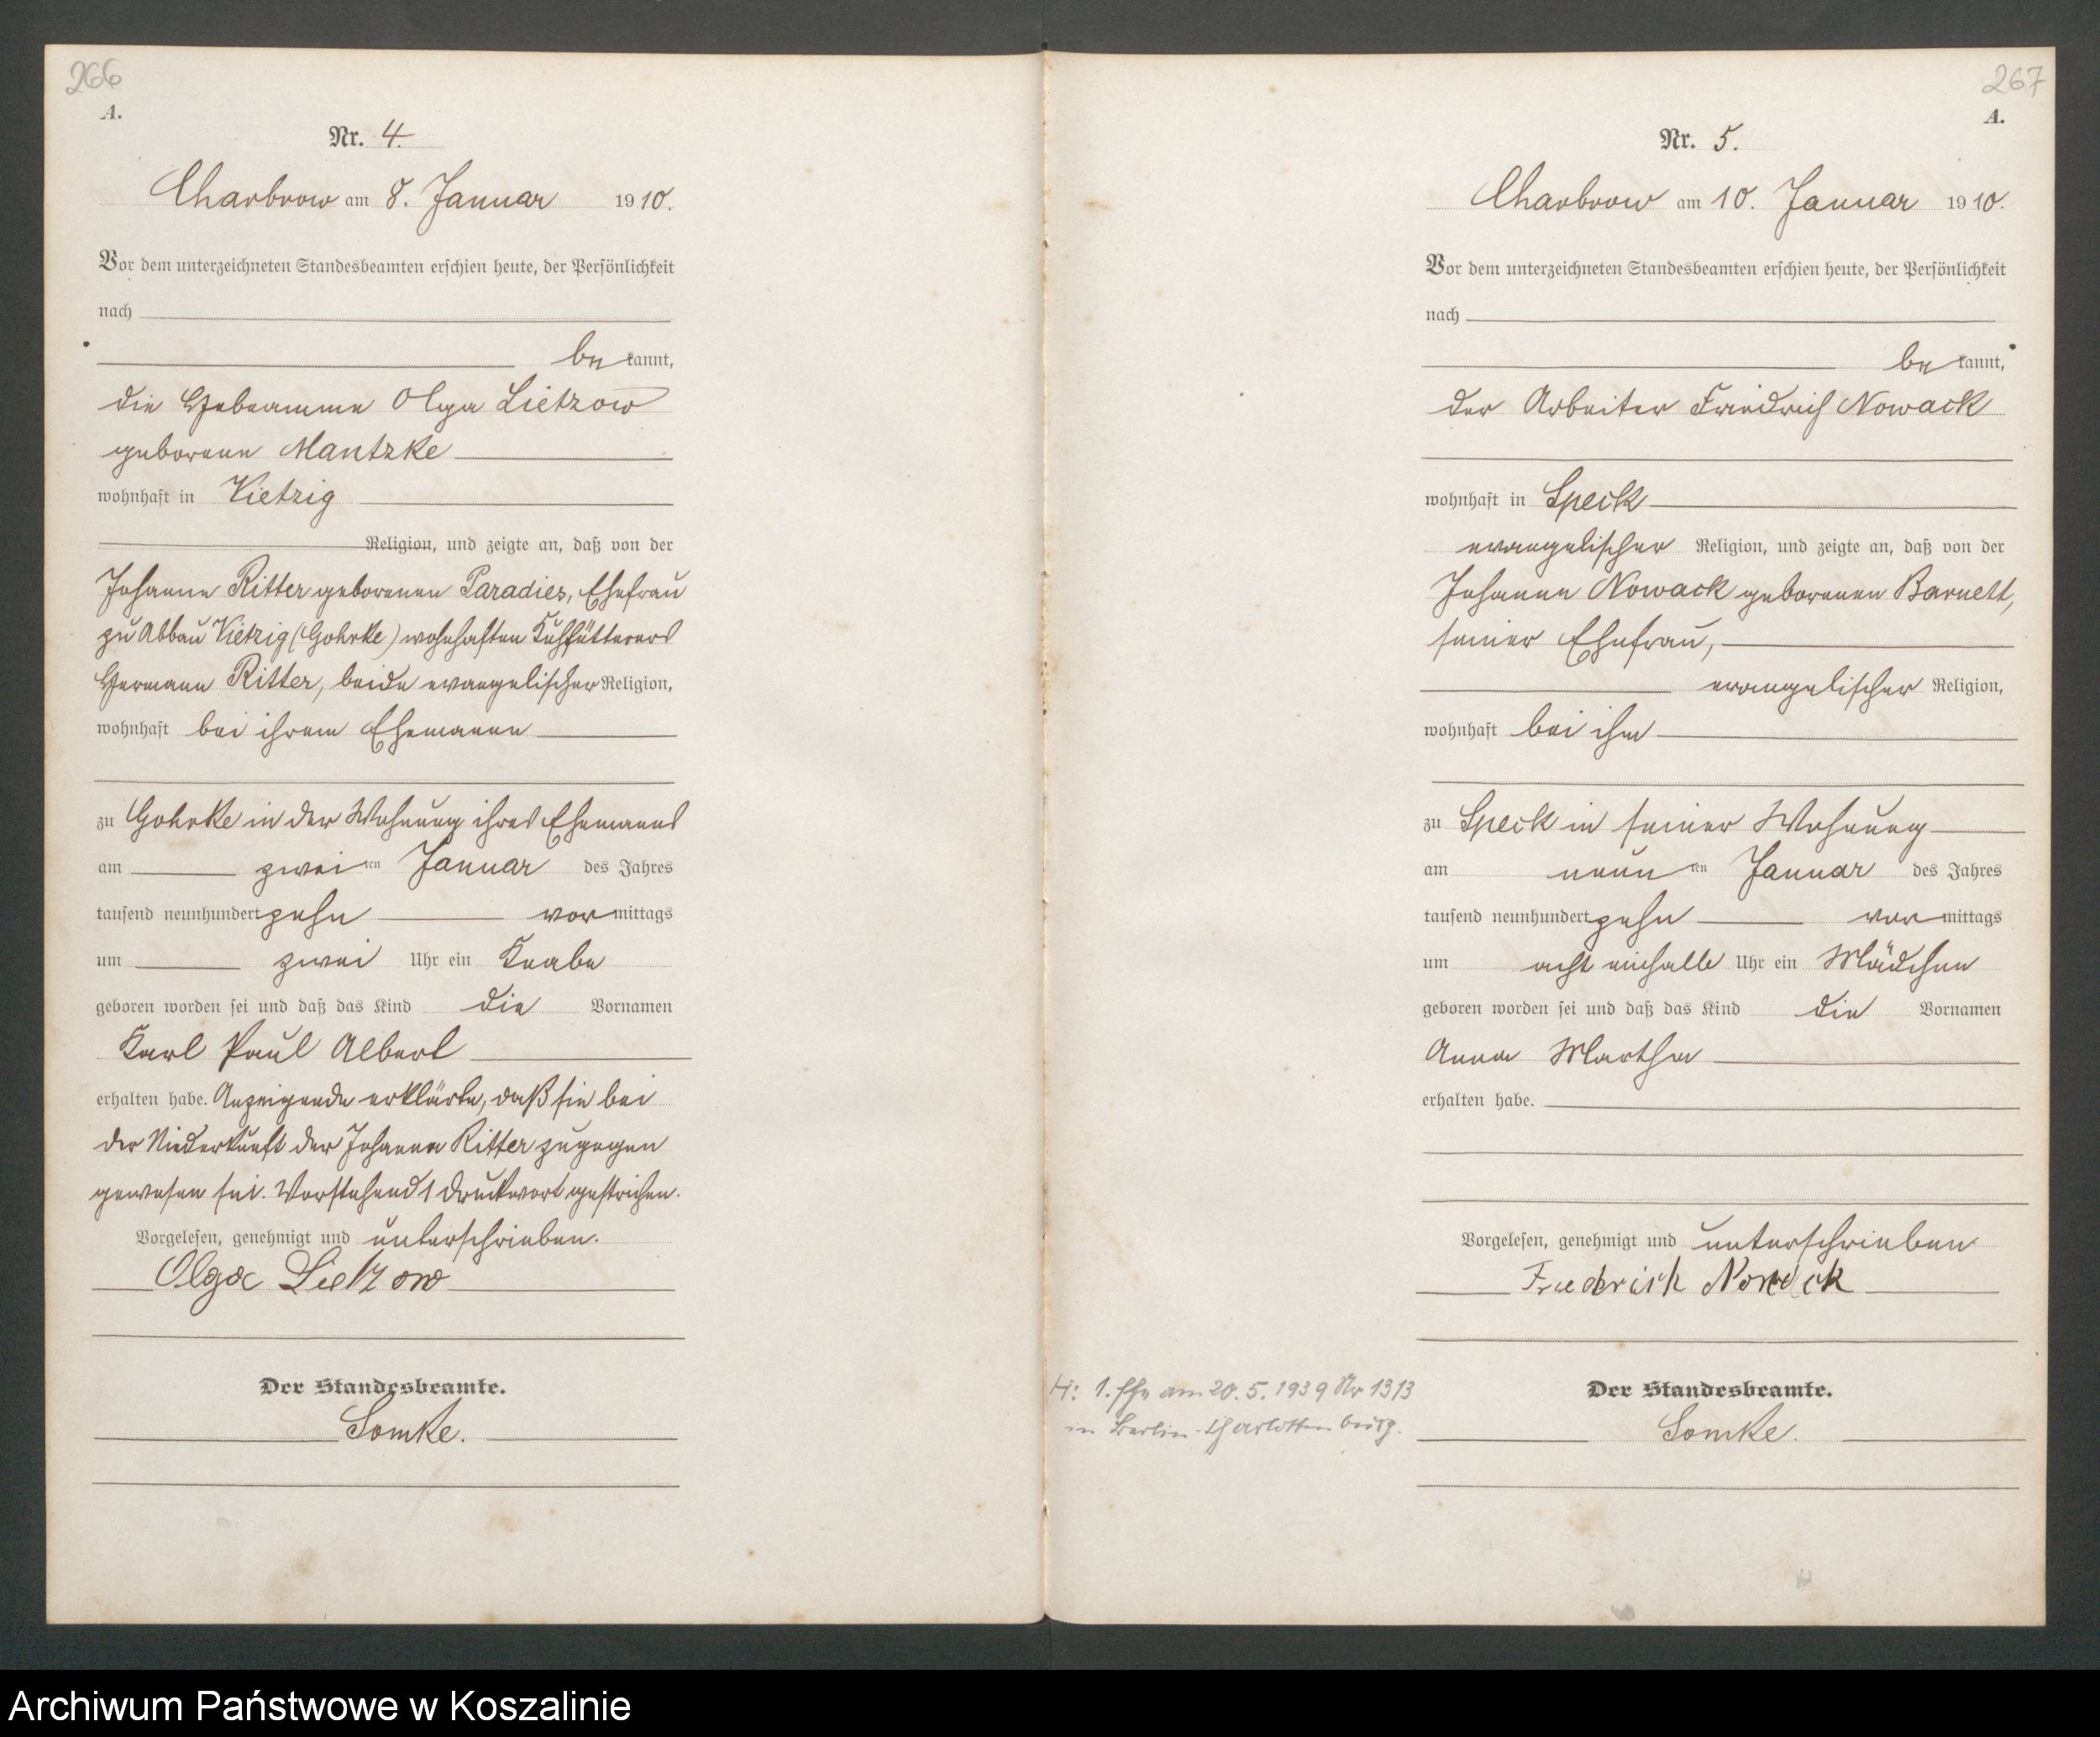 266
A.
Nr. 4.
Charbrow am 8. Januar 1910.
Vor dem unterzeichneten Standesbeamten erschien heute, der Persönlichkeit
nach
bekannt,
die Hebeamme Olga Lietzow
geborene Mantzke
wohnhaft in Vietzig
Religion, und zeigte an, daß von der
Johanne Ritter geborenen Paradies, Ehefrau
zu Abbau Vietzig (Gohrke) wohnhaften Kuhfütterers
Hermann Ritter, beide evangelischer Religion,
wohnhaft bei ihrem Ehemanne
zu Gohrke in der Wohnung ihres Ehemanns
am zweiten Januar des Jahres
tausend neunhundert zehn vormittags
um zwei Uhr ein Knabe
geboren worden sei und daß das Kind die Vornamen
Karl Paul Albert
erhalten habe. Anzeigende erklärte, daß sie bei
der Niederkunft der Johanna Ritter zugegen
gewesen sei. Vorstehend 1 Druckwort gestrichen.
Vorgelesen, genehmigt und unterschrieben.
Olga Lietzow
Der Standesbeamte.
Somke.
267
A.
Nr. 5.
Charbrow am 10. Januar 1910.
Vor dem unterzeichneten Standesbeamten erschien heute, der Persönlichkeit
nach
bekannt,
der Arbeiter Friedrich Nowack
wohnhaft in Speck
evangelischer Religion, und zeigte an, daß von der
Johanne Nowack geborenen Barnett,
seiner Ehefrau,
evangelischer Religion,
wohnhaft bei ihm
zu Speck in seiner Wohnung
am neunten Januar des Jahres
tausend neunhundert zehn vormittags
um acht einhalb Uhr ein Mädchen
geboren worden sei und daß das Kind die Vornamen
Anna Martha
erhalten habe.
Vorgelesen, genehmigt und unterschrieben
Friedrich Nowack
H: 1. Ehe am 20.5.1939 Nr 1313
in Berlin-Charlottenburg.
Der Standesbeamte.
Somke.
Archiwum Państwowe w Koszalinie